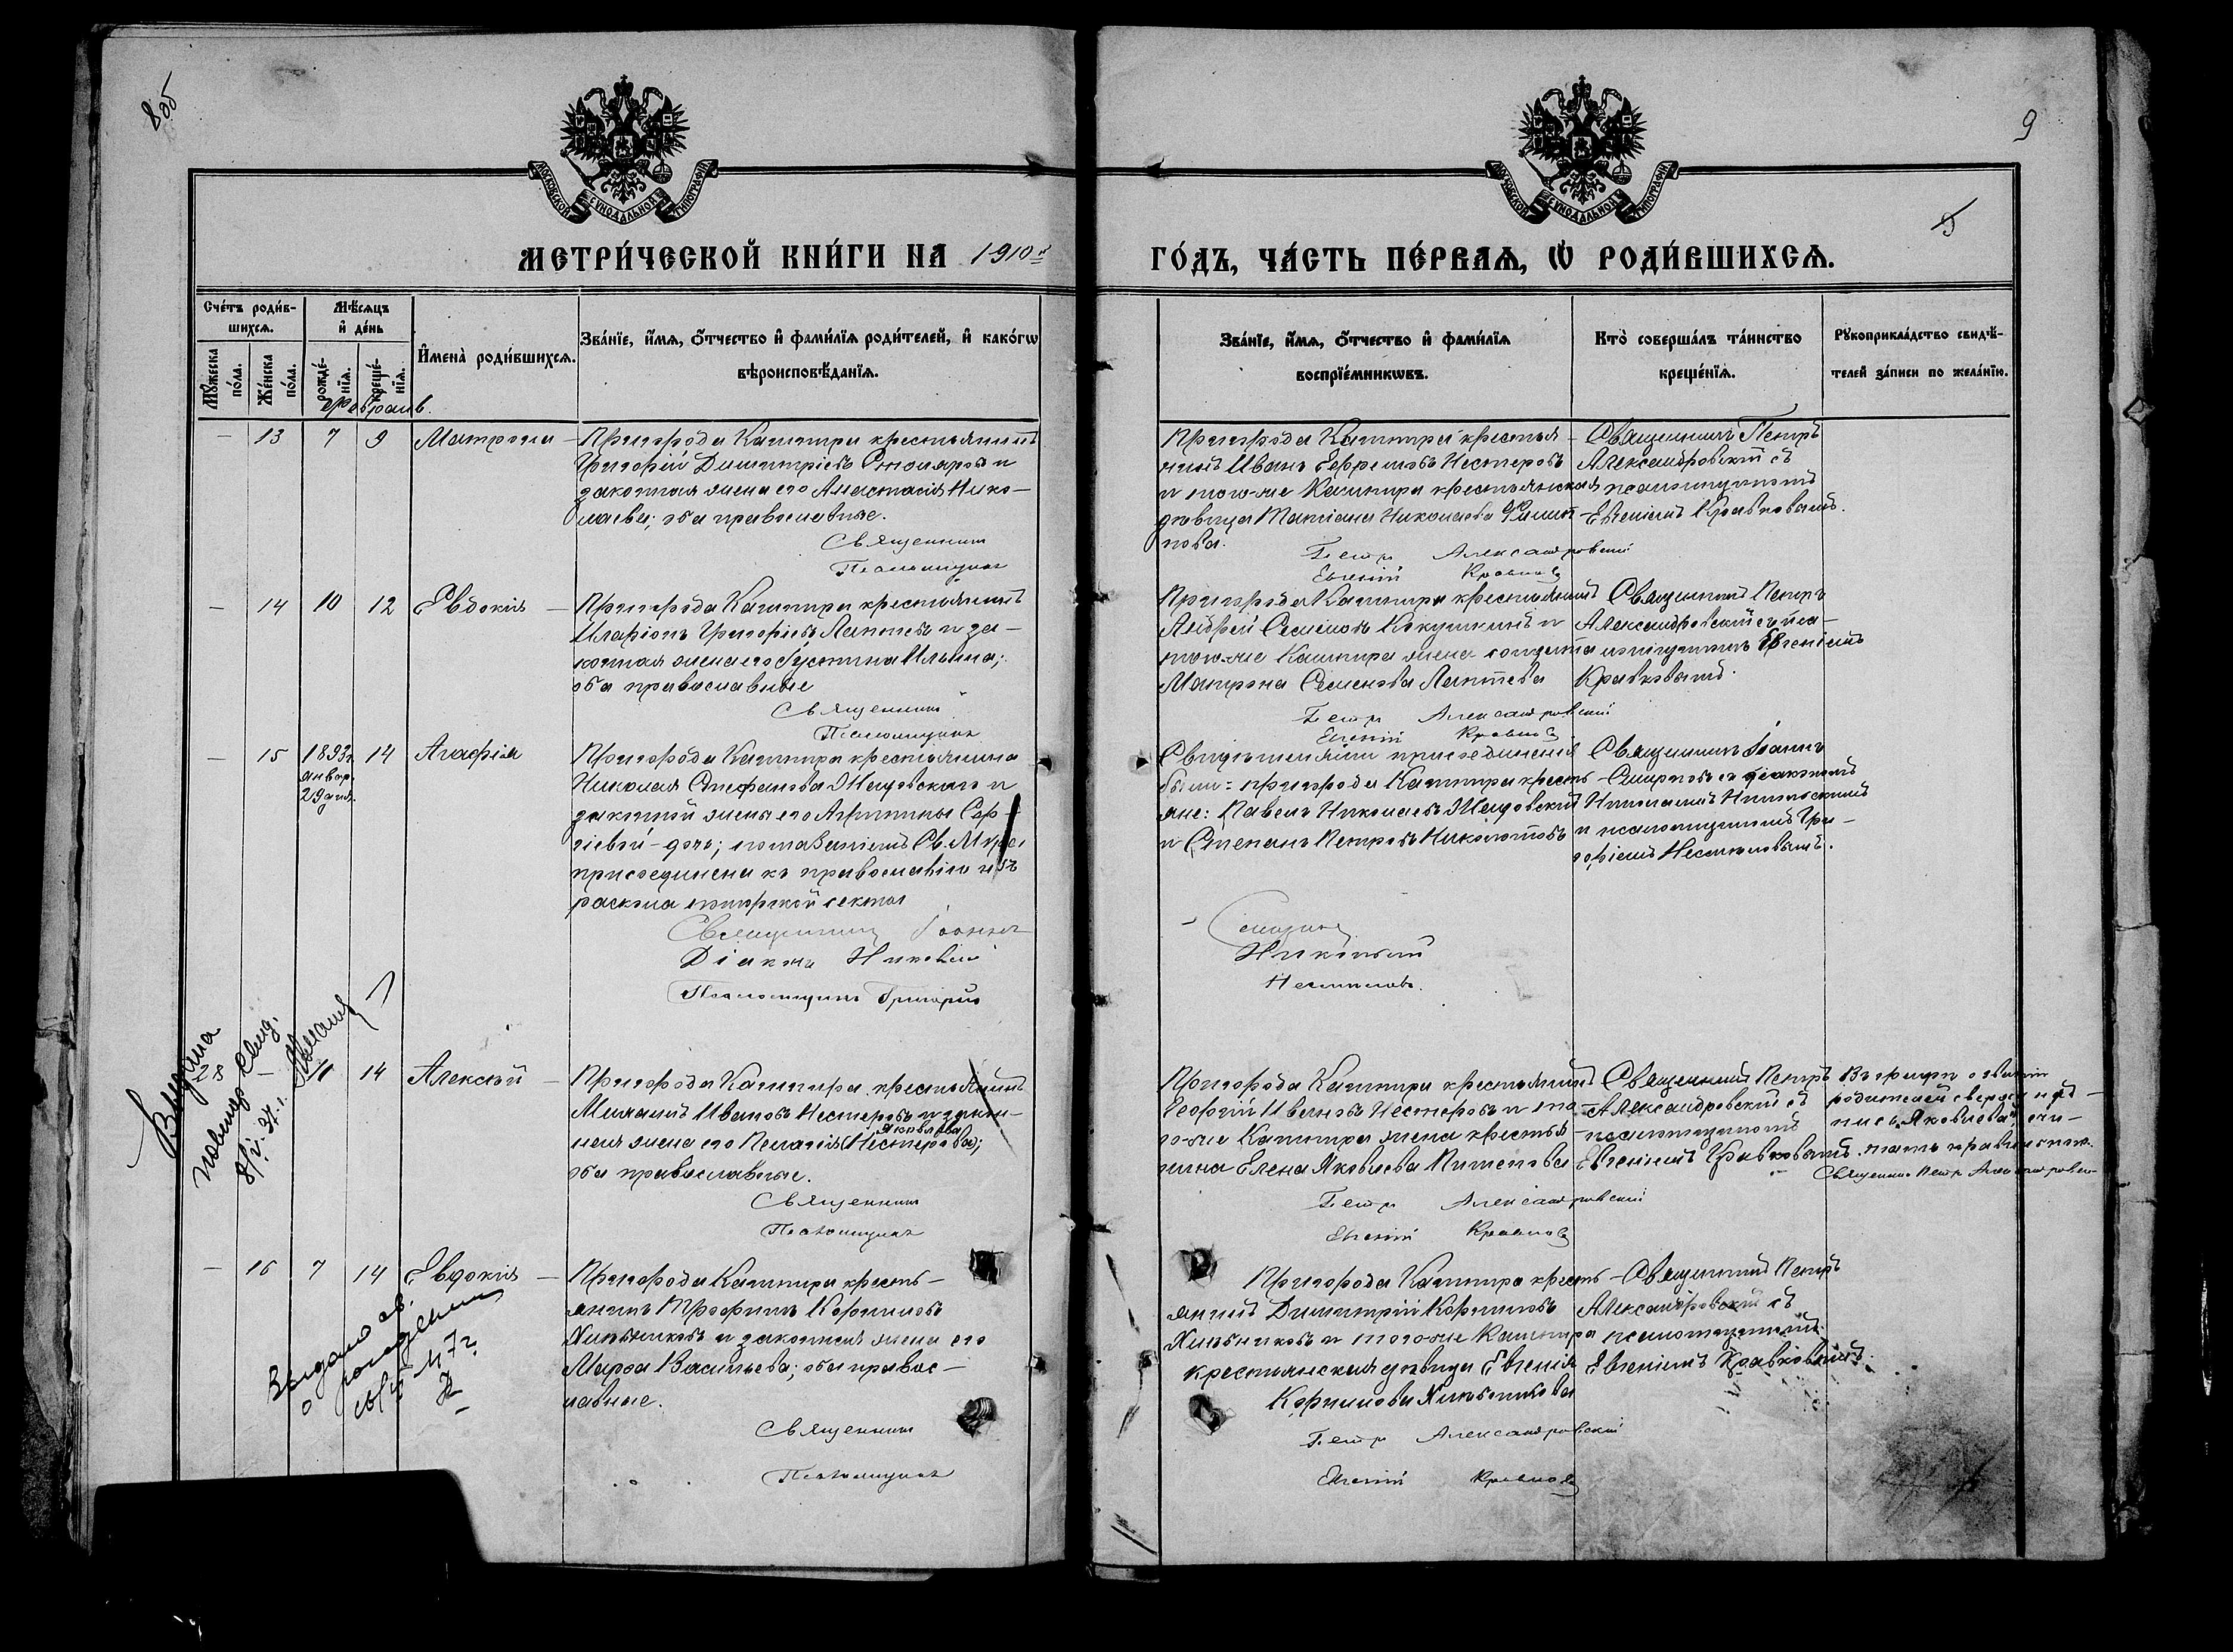 8 об
9
МОСКОВСКОЙ СѴНОДАЛЬНОЙ ТИПОГРАФІИ
МОСКОВСКОЙ СѴНОДАЛЬНОЙ ТИПОГРАФІИ
9
МЕТРИ́ЧЕСКОЙ КНИ́ГИ НА 1910й
ГО́ДЪ, ЧА́СТЬ ПЕ́РВАѦ, Ѡ РОДИ́ВШИХСѦ.
Сче́тъ роди́в-
шихсѧ.
Мꙋ́жеска по́ла.
Же́нска по́ла.
Мѣ́сѧцъ
и҆ де́нь
рожде́-
нїѧ.
креще́-
нїѧ.
И҆мена̀ роди́вшихсѧ.
Зва́нїе, и҆́мѧ, о҆́тчество и҆ фами́лїѧ роди́телей, и҆ како́гѡ
вѣроисповѣ́данїѧ.
Зва́нїе, и҆́мѧ, о҆́тчество и҆ фами́лїѧ
воспрїе́мникѡвъ.
Кто̀ соверша́лъ та́инство
креще́нїѧ.
Рꙋкоприкла́дство свидѣ́-
телей за́писи по жела́нїю.
Февраль.
— 13 7 9 Матрона —
Пригорода Кашпира крестьянинъ
Григорій Димитріевъ Столяровъ и
законная жена его Анастасія Нико-
лаева; оба православные.
Священникъ
Псаломщикъ
Пригорода Кашпира крестья-
нинъ Иванъ Ефремовъ Нестеровъ
и того-же Кашпира крестьянская
дѣвица Татіана Николаева Филип-
пова.
Петръ Александровскій
Евгеній Кравковъ
Священникъ Петръ
Александровскій съ
псаломщикомъ
Евгеніемъ Кравковымъ.
— 14 10 12 Евдокія —
Пригорода Кашпира крестьянинъ
Иларіонъ Григорьевъ Лаптевъ и за-
конная жена его Іустина Ильина;
оба православные
Священникъ
Псаломщикъ
Пригорода Кашпира крестьянинъ
Андрей Семеновъ Кокушкинъ и
того-же Кашпира жена солдата
Матрона Семенова Лаптева
Петръ Александровскій
Евгеній Кравковъ
Священникъ Петръ
Александровскій съ пса-
ломщикомъ Евгеніемъ
Кравковымъ.
— 15 1893г. январ. 29 дня. 14 Агафія
Пригорода Кашпира крестьянина
Николая Стефанова Жегловскаго и
законной жены его Агрипины Сер-
гіевой - дочь; помазаніемъ Св. Мура
присоединена къ православію изъ
раскола поморской секты
Священникъ Іоаннъ
Діаконъ Николай
Псаломщикъ Григорій
Свидѣтелями присоединенія
были: пригорода Кашпира кресть-
яне: Павелъ Николаевъ Жегловскій
и Степанъ Петровъ
Смирновъ
Никольскій
Священникъ Іоаннъ
Смирновъ съ діакономъ
Николаемъ Никольскимъ
и псаломщикомъ Гри-
горіемъ
Выдана
повтор свид.
8/V. 37 г.
28 — 11 14 Алексѣй —
Пригорода Кашпира крестьянинъ
Михаилъ Ивановъ Нестеровъ и закон-
ная жена его Пелагія Яковлева (Нестерова);
оба православные.
Священникъ
Псаломщикъ
Пригорода Кашпира крестьянинъ
Георгій Ивановъ Нестеровъ и то-
го-же Кашпира жена крестья-
нина Елена Яковлева Пименова
Петръ Александровскій
Евгеній Кравковъ
Священникъ Петръ
Александровскій съ
псаломщикомъ
Евгеніемъ Кравковымъ.
Въ графѣ о званіи
родителей сверху над-
пись „Яковлева“ счи-
тать правильною.
Священникъ Петръ Александровскій
— 16 7 14 Евдокія —
Пригорода Кашпира кресть-
янинъ Трофимъ Корниловъ
Хлѣбниковъ и законная жена его
Марѳа Васильева; оба правос-
лавные.
Священникъ
Псаломщикъ
Пригорода Кашпира кресть-
янинъ Димитрій Корниловъ
Хлѣбниковъ и того-же Кашпира
крестьянская дѣвица Евгенія
Корнилова Хлѣбникова
Петръ Александровскій
Евгеній Кравковъ
Священникъ Петръ
Александровскій съ
псаломщикомъ
Евгеніемъ Кравковымъ.
Выдано св.
о рождении